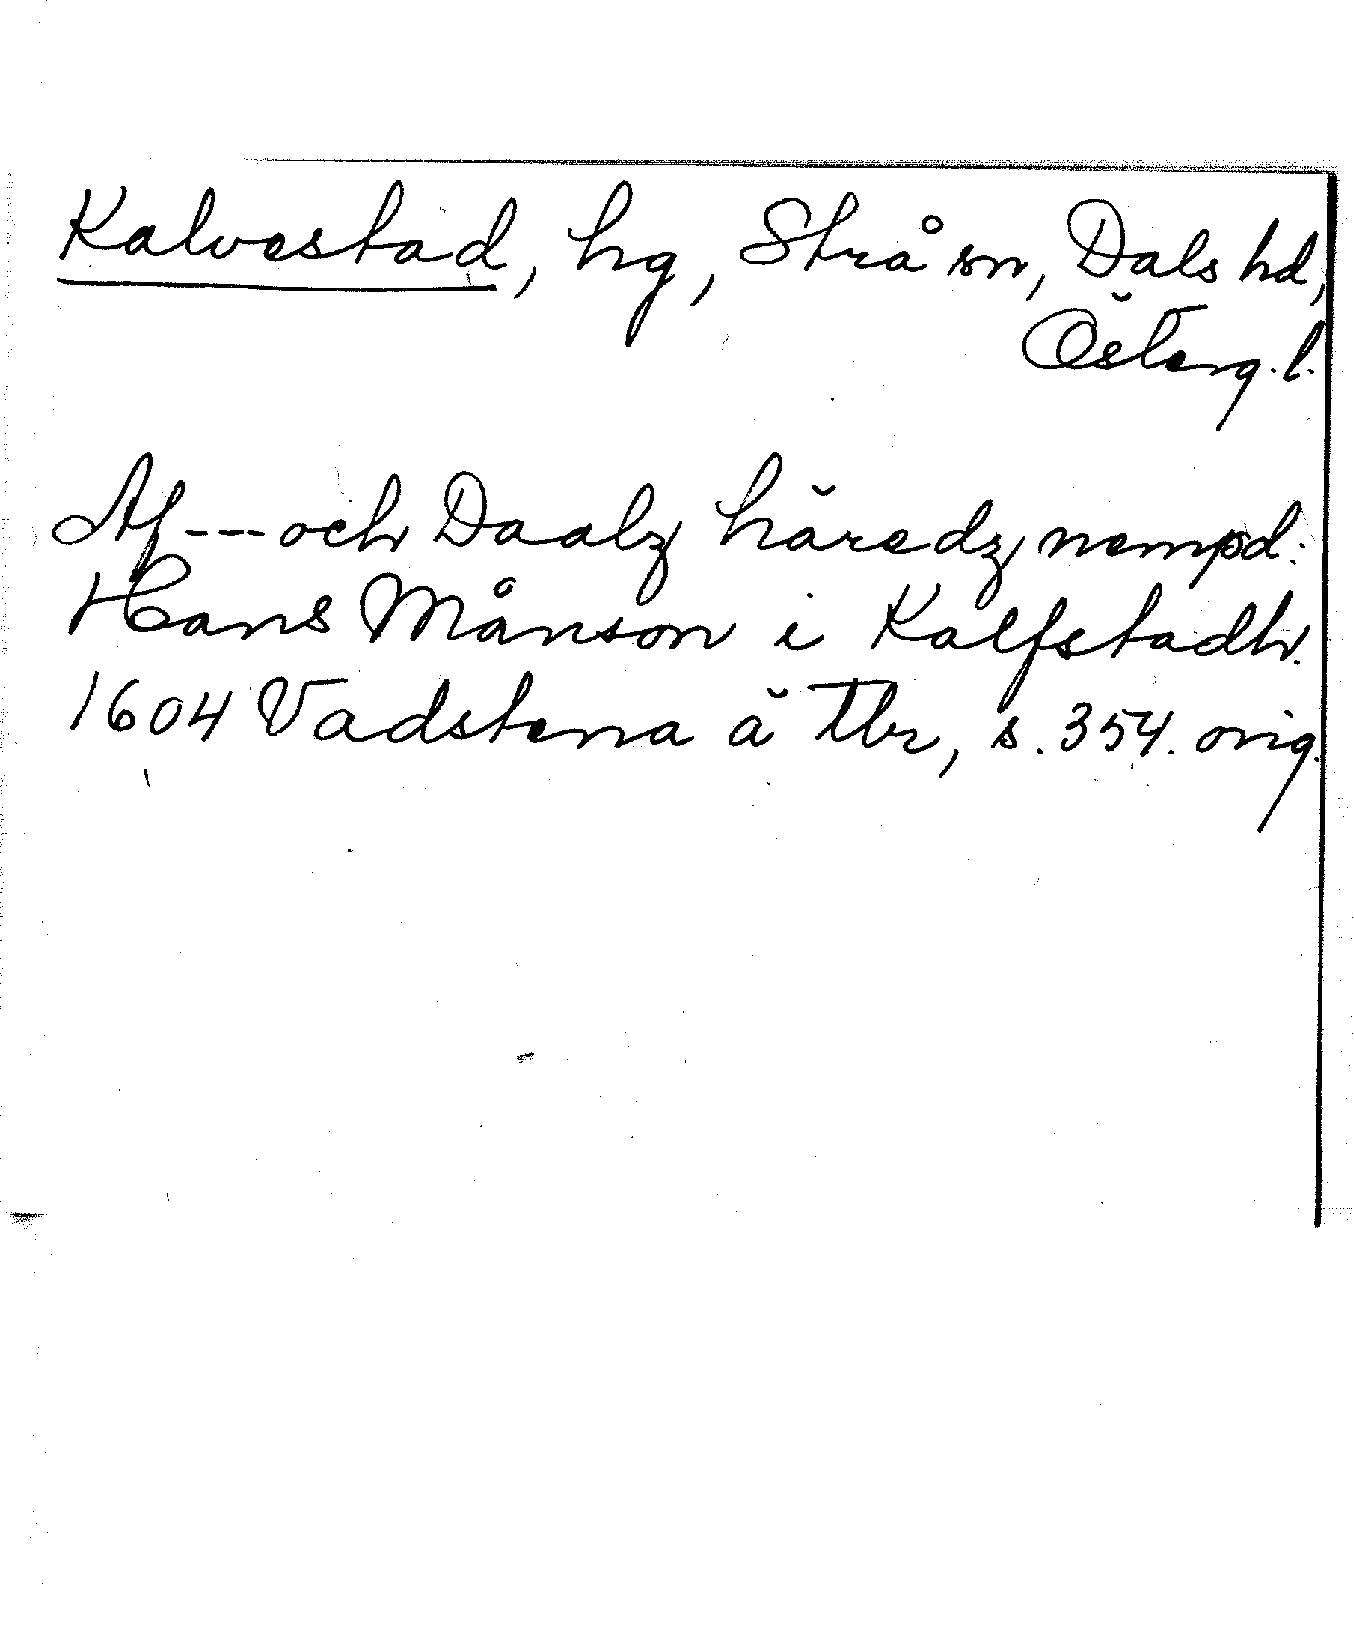 Kalvestad, hg, Strå sn, Dals hd,
Österg.l.
Af --- och Daalz häredz nempd:
Hans Månson i Kalfstadh.
1604 Vadstena ä Tbr, s. 354. orig.